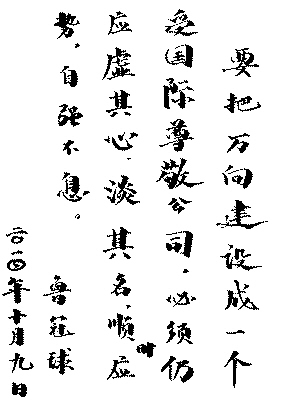 要把万向建设成一个
受国际尊敬公司，必须仍
应虚其心、淡其名，顺应时
势，自强不息。
鲁冠球
二〇一四年十月九日